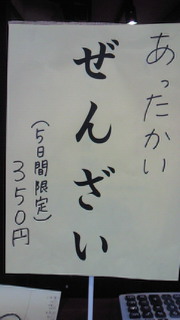 あったかい
ぜんざい
(5日間限定)
350円